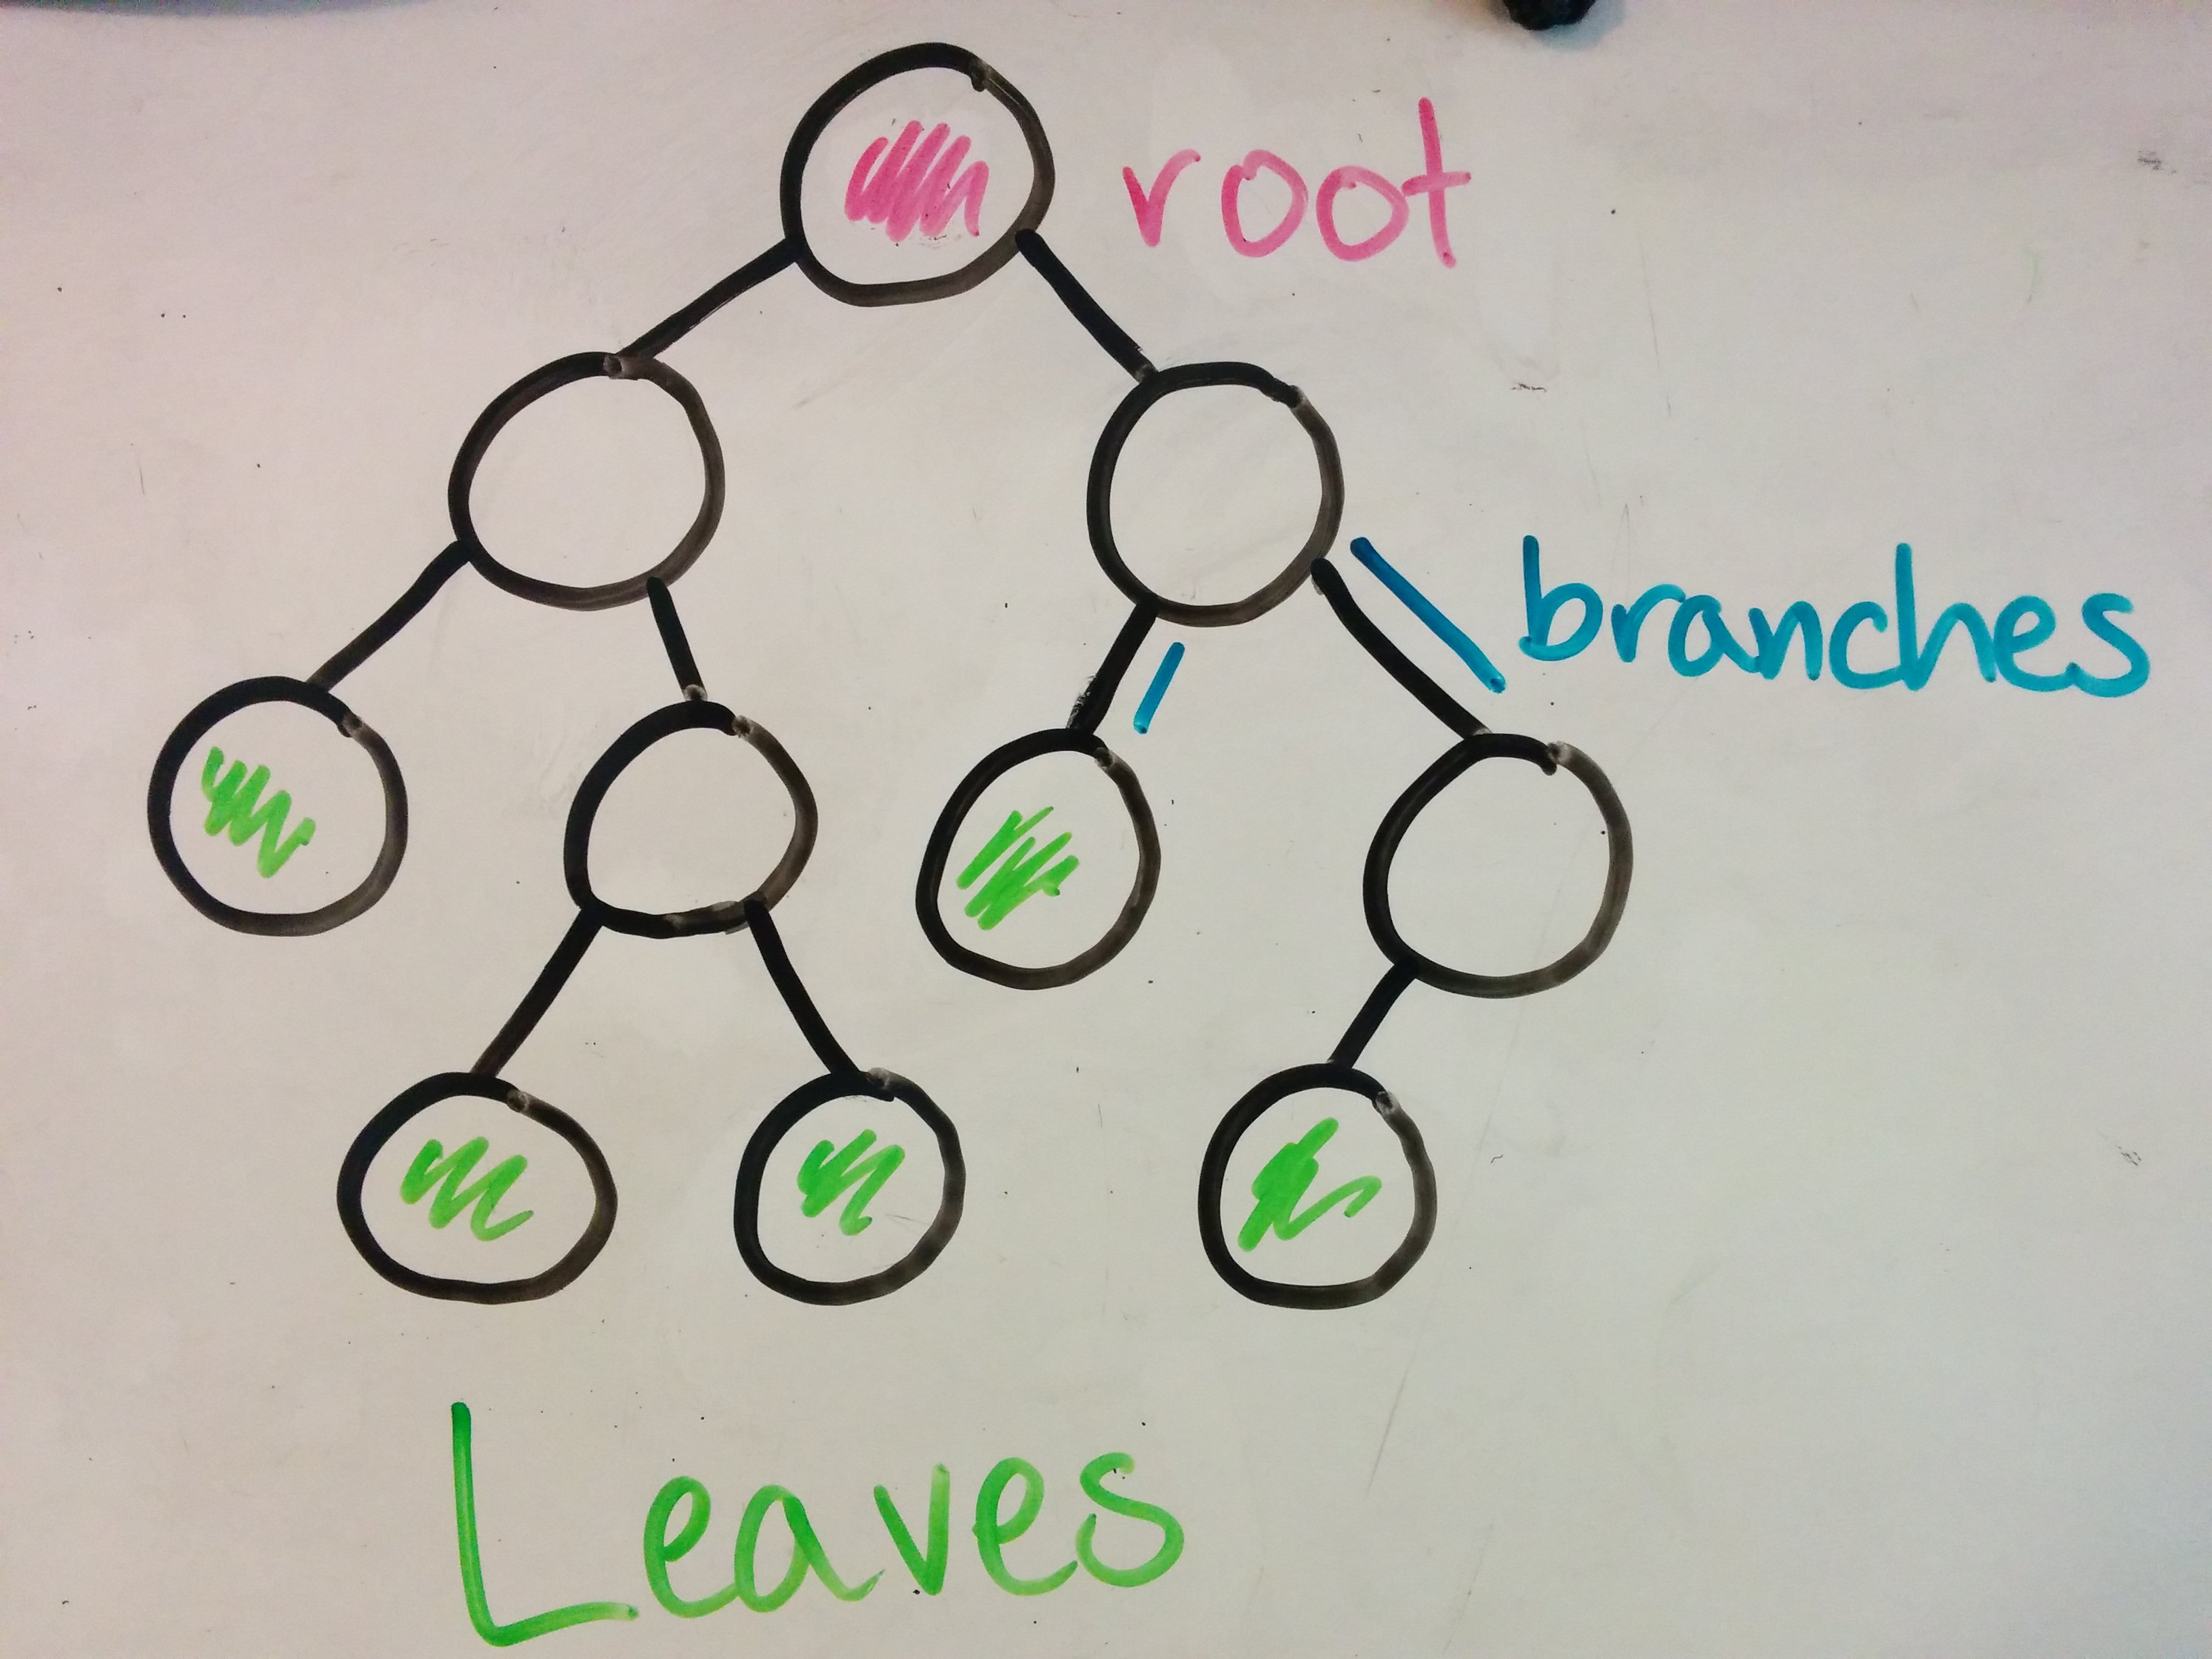 root
branches
Leaves